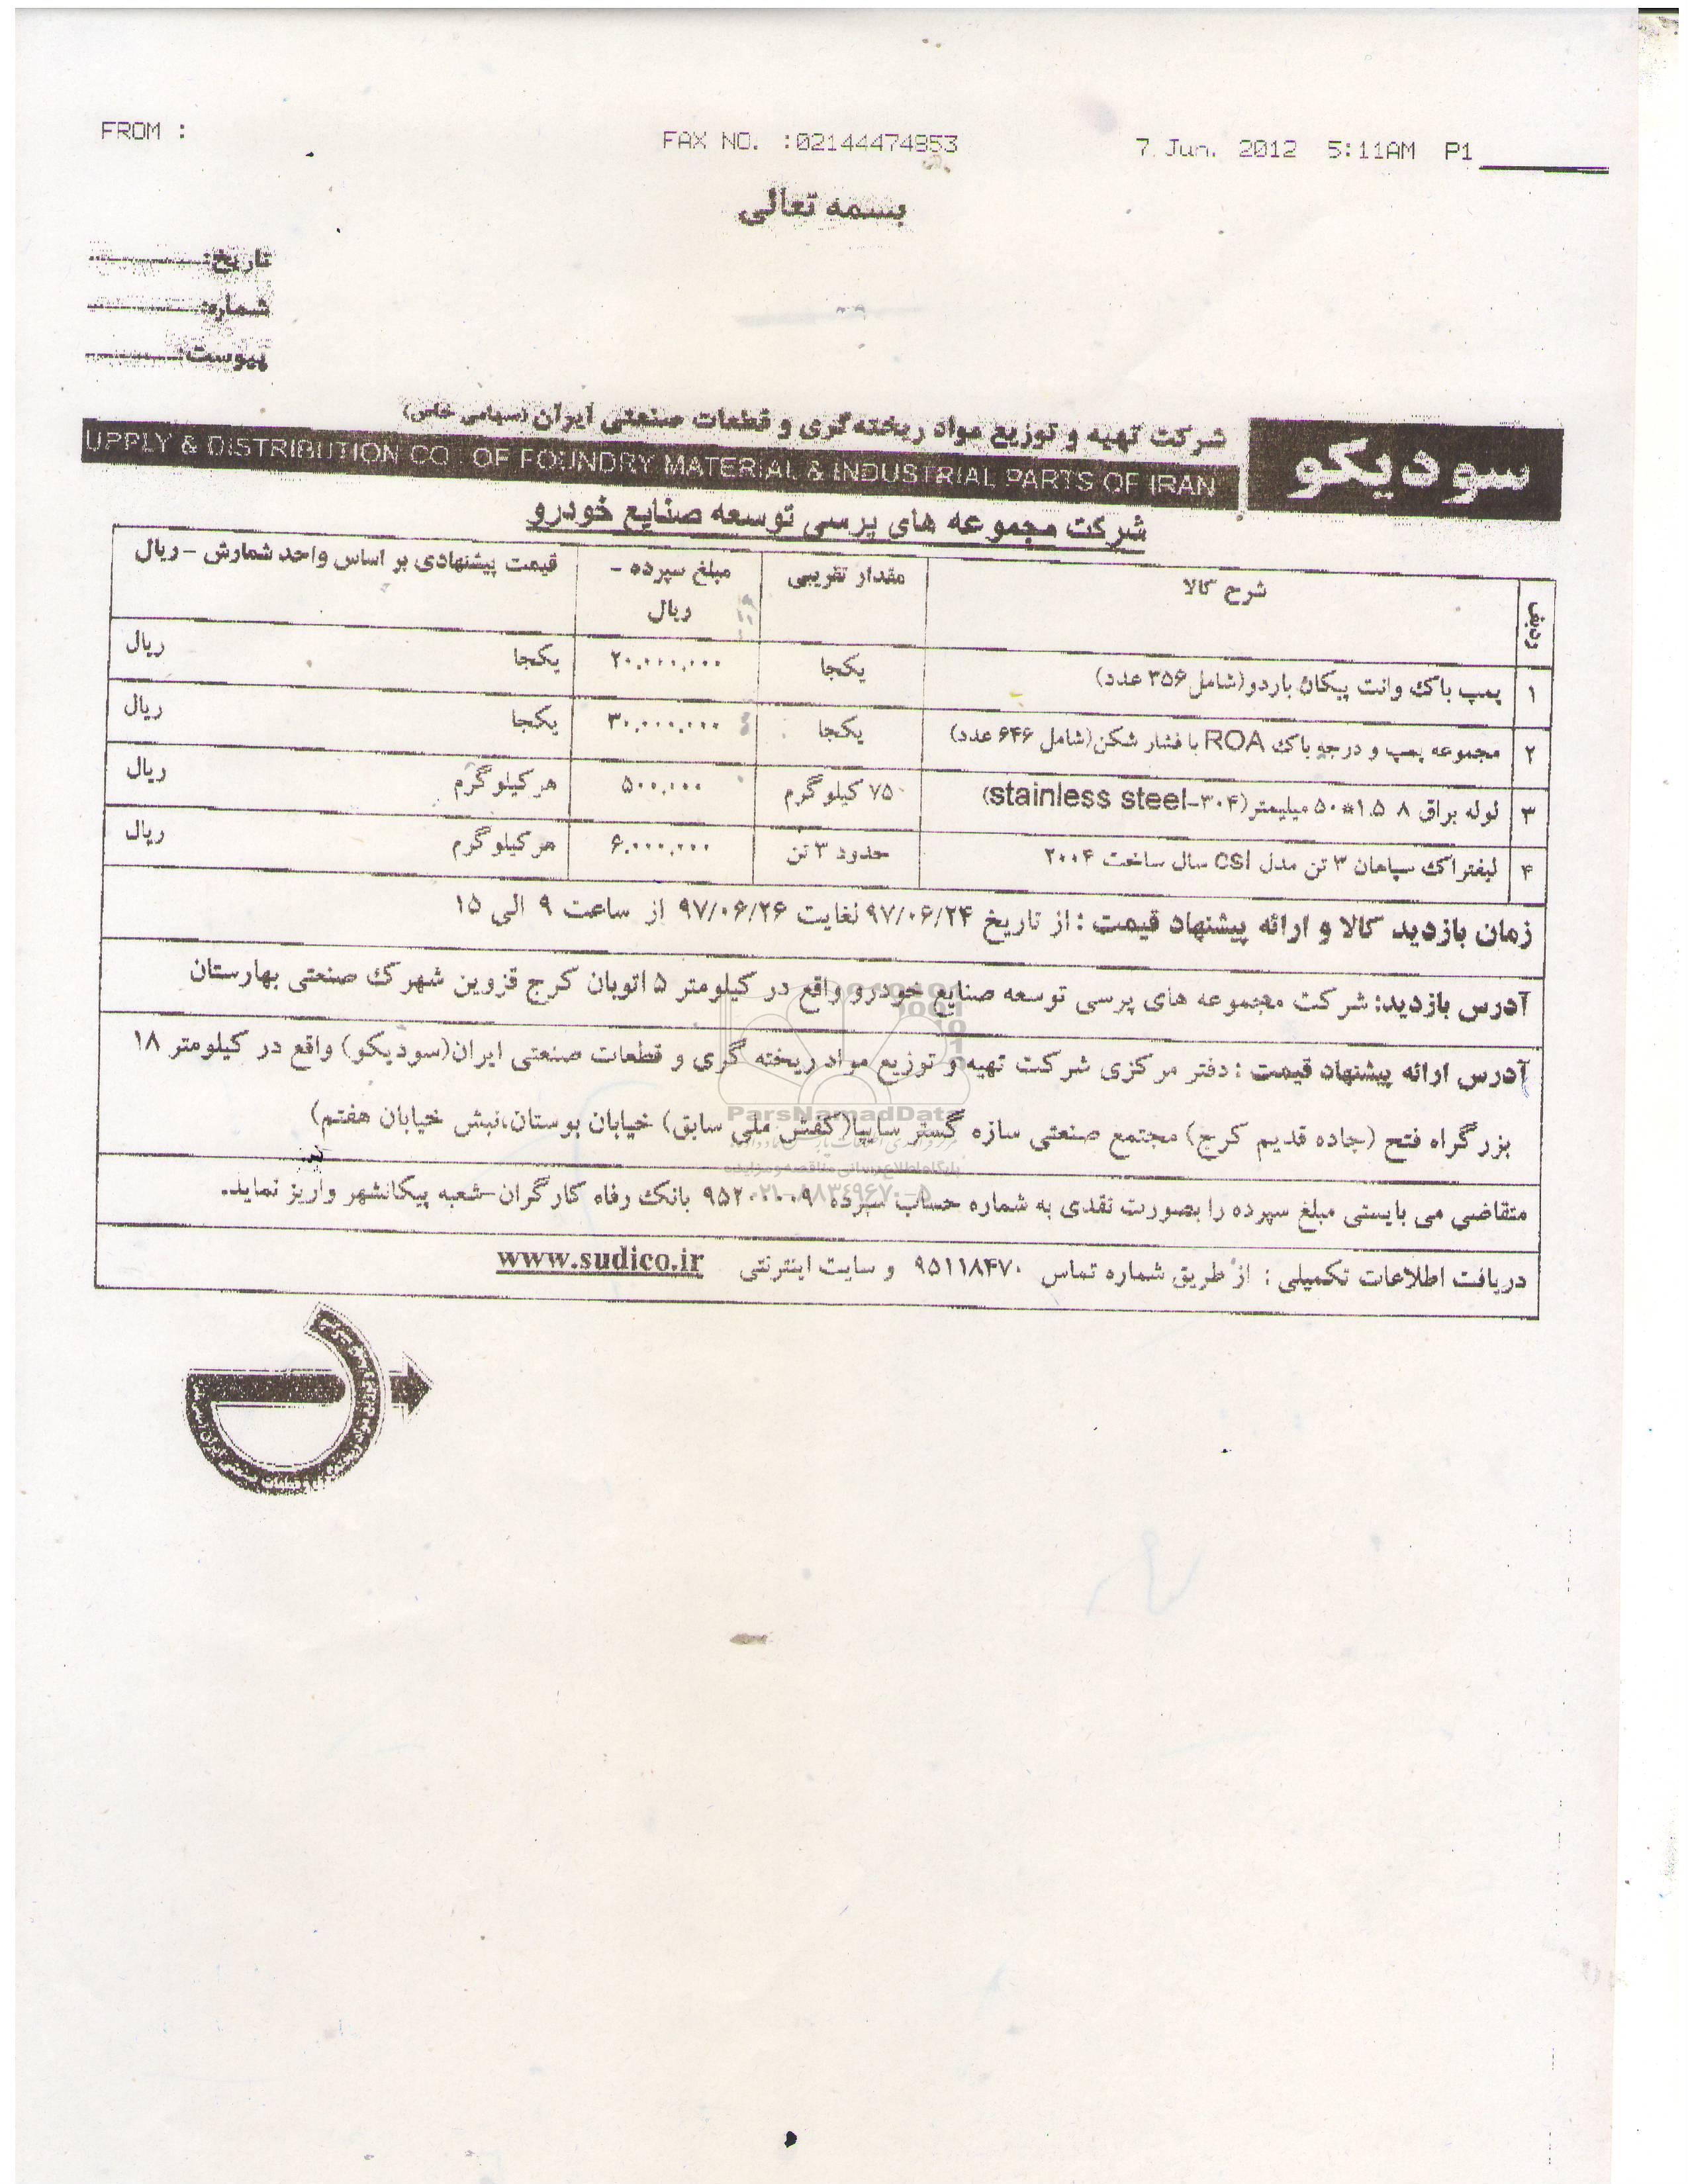 FROM :
FAX NO. :02144474953
7 Jun. 2012 5:11AM P1
بسمه تعالی
تاریخ:
شماره:
پیوست:
سودیکو
شرکت تهیه و توزیع مواد ریخته گری و قطعات صنعتی ایران (سهامی خاص)
UPPLY & DISTRIBUTION CO. OF FOUNDRY MATERIAL & INDUSTRIAL PARTS OF IRAN
شرکت مجموعه های پرسی توسعه صنایع خودرو
ردیف شرح کالا مقدار تقریبی مبلغ سپرده - ریال قیمت پیشنهادی بر اساس واحد شمارش - ریال
۱ پمپ باک وانت پیکان باردو(شامل ۳۵۶ عدد) یکجا ۲۰,۰۰۰,۰۰۰ یکجا ریال
۲ مجموعه پمپ و درجه باک ROA با فشار شکن(شامل ۶۴۶ عدد) یکجا ۳۰,۰۰۰,۰۰۰ یکجا ریال
۳ لوله براق ۸ ۱.۵*۵۰ میلیمتر(stainless steel-۳۰۴) ۷۵۰ کیلوگرم ۵۰۰,۰۰۰ هر کیلوگرم ریال
۴ لیفتراک سپاهان ۳ تن مدل csl سال ساخت ۲۰۰۴ حدود ۳ تن ۶,۰۰۰,۰۰۰ هر کیلوگرم ریال
زمان بازدید کالا و ارائه پیشنهاد قیمت : از تاریخ ۹۷/۰۶/۲۴ لغایت ۹۷/۰۶/۲۶ از ساعت ۹ الی ۱۵
آدرس بازدید: شرکت مجموعه های پرسی توسعه صنایع خودرو واقع در کیلومتر ۵ اتوبان کرج قزوین شهرک صنعتی بهارستان
آدرس ارائه پیشنهاد قیمت : دفتر مرکزی شرکت تهیه و توزیع مواد ریخته گری و قطعات صنعتی ایران(سودیکو) واقع در کیلومتر ۱۸
بزرگراه فتح (جاده قدیم کرج) مجتمع صنعتی سازه گستر سایپا(کفش ملی سابق) خیابان بوستان،نبش خیابان هفتم)
ParsNamadData
پایگاه اطلاع رسانی مناقصه و مزایده
۰۲۱-۸۸۳۴۹۶۷۰-۵
متقاضی می بایستی مبلغ سپرده را بصورت نقدی به شماره حساب سپرده ۹۵۲۰۰۰۰۹ بانک رفاه کارگران-شعبه پیکانشهر واریز نماید.
دریافت اطلاعات تکمیلی : از طریق شماره تماس ۹۵۱۱۸۴۷۰ و سایت اینترنتی www.sudico.ir